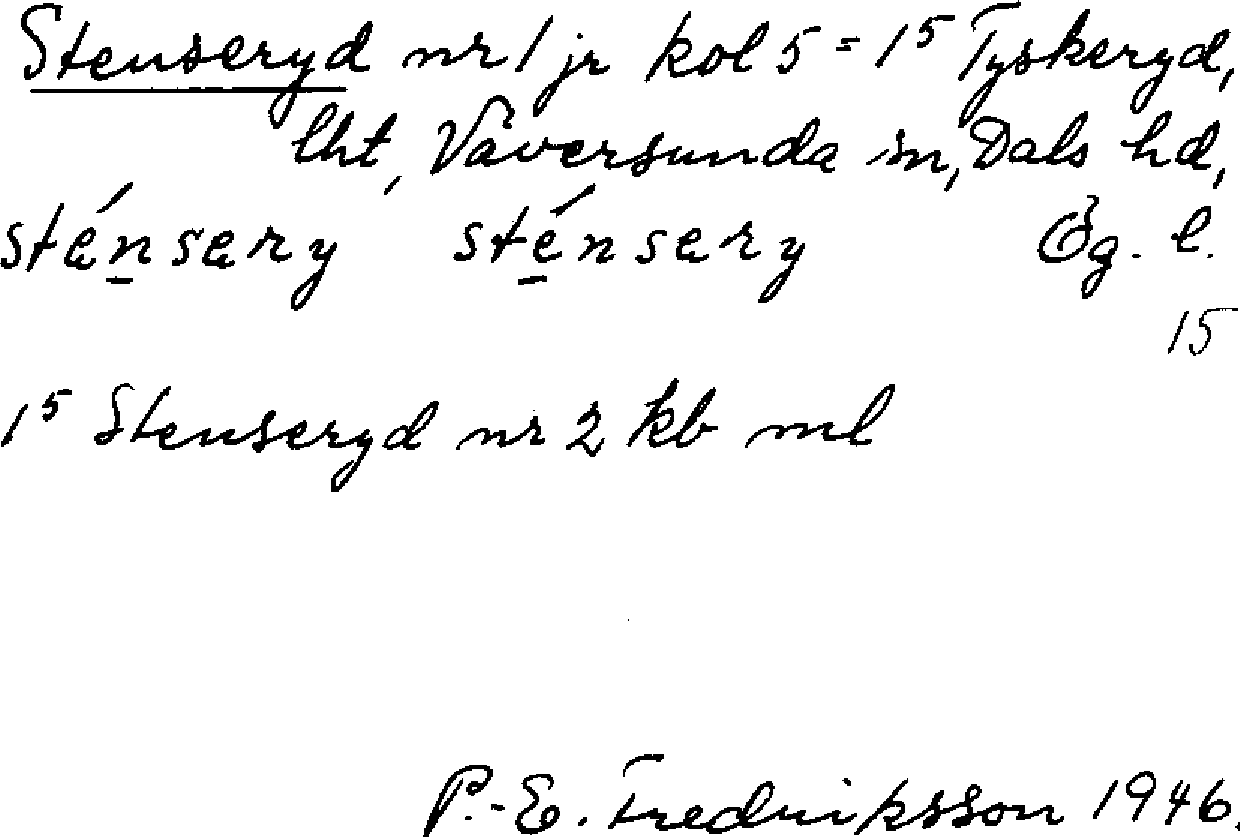 Stenseryd nr 1 jr kol 5 = 1⁵ Tyskeryd,
lht, Väversunda sn, Dals hd,
sténsery sténsery Ög. l.
15
1⁵ Stenseryd nr 2 kb ml
P.-E. Fredriksson 1946.